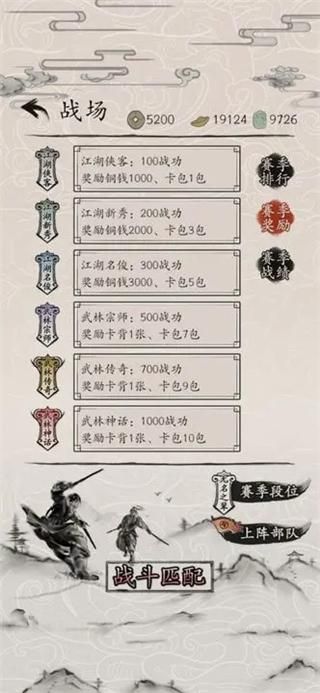 战场
5200
19124
9726
江湖侠客
江湖侠客：100战功
奖励铜钱1000、卡包1包
江湖新秀
江湖新秀：200战功
奖励铜钱2000、卡包3包
江湖名俊
江湖名俊：300战功
奖励铜钱3000、卡包5包
武林宗师
武林宗师：500战功
奖励卡背1张、卡包7包
武林传奇
武林传奇：700战功
奖励卡背1张、卡包9包
武林神话
武林神话：1000战功
奖励卡背1张、卡包10包
赛季
排行
赛季
奖励
赛季
战绩
无名之辈
赛季段位
上阵部队
战斗匹配